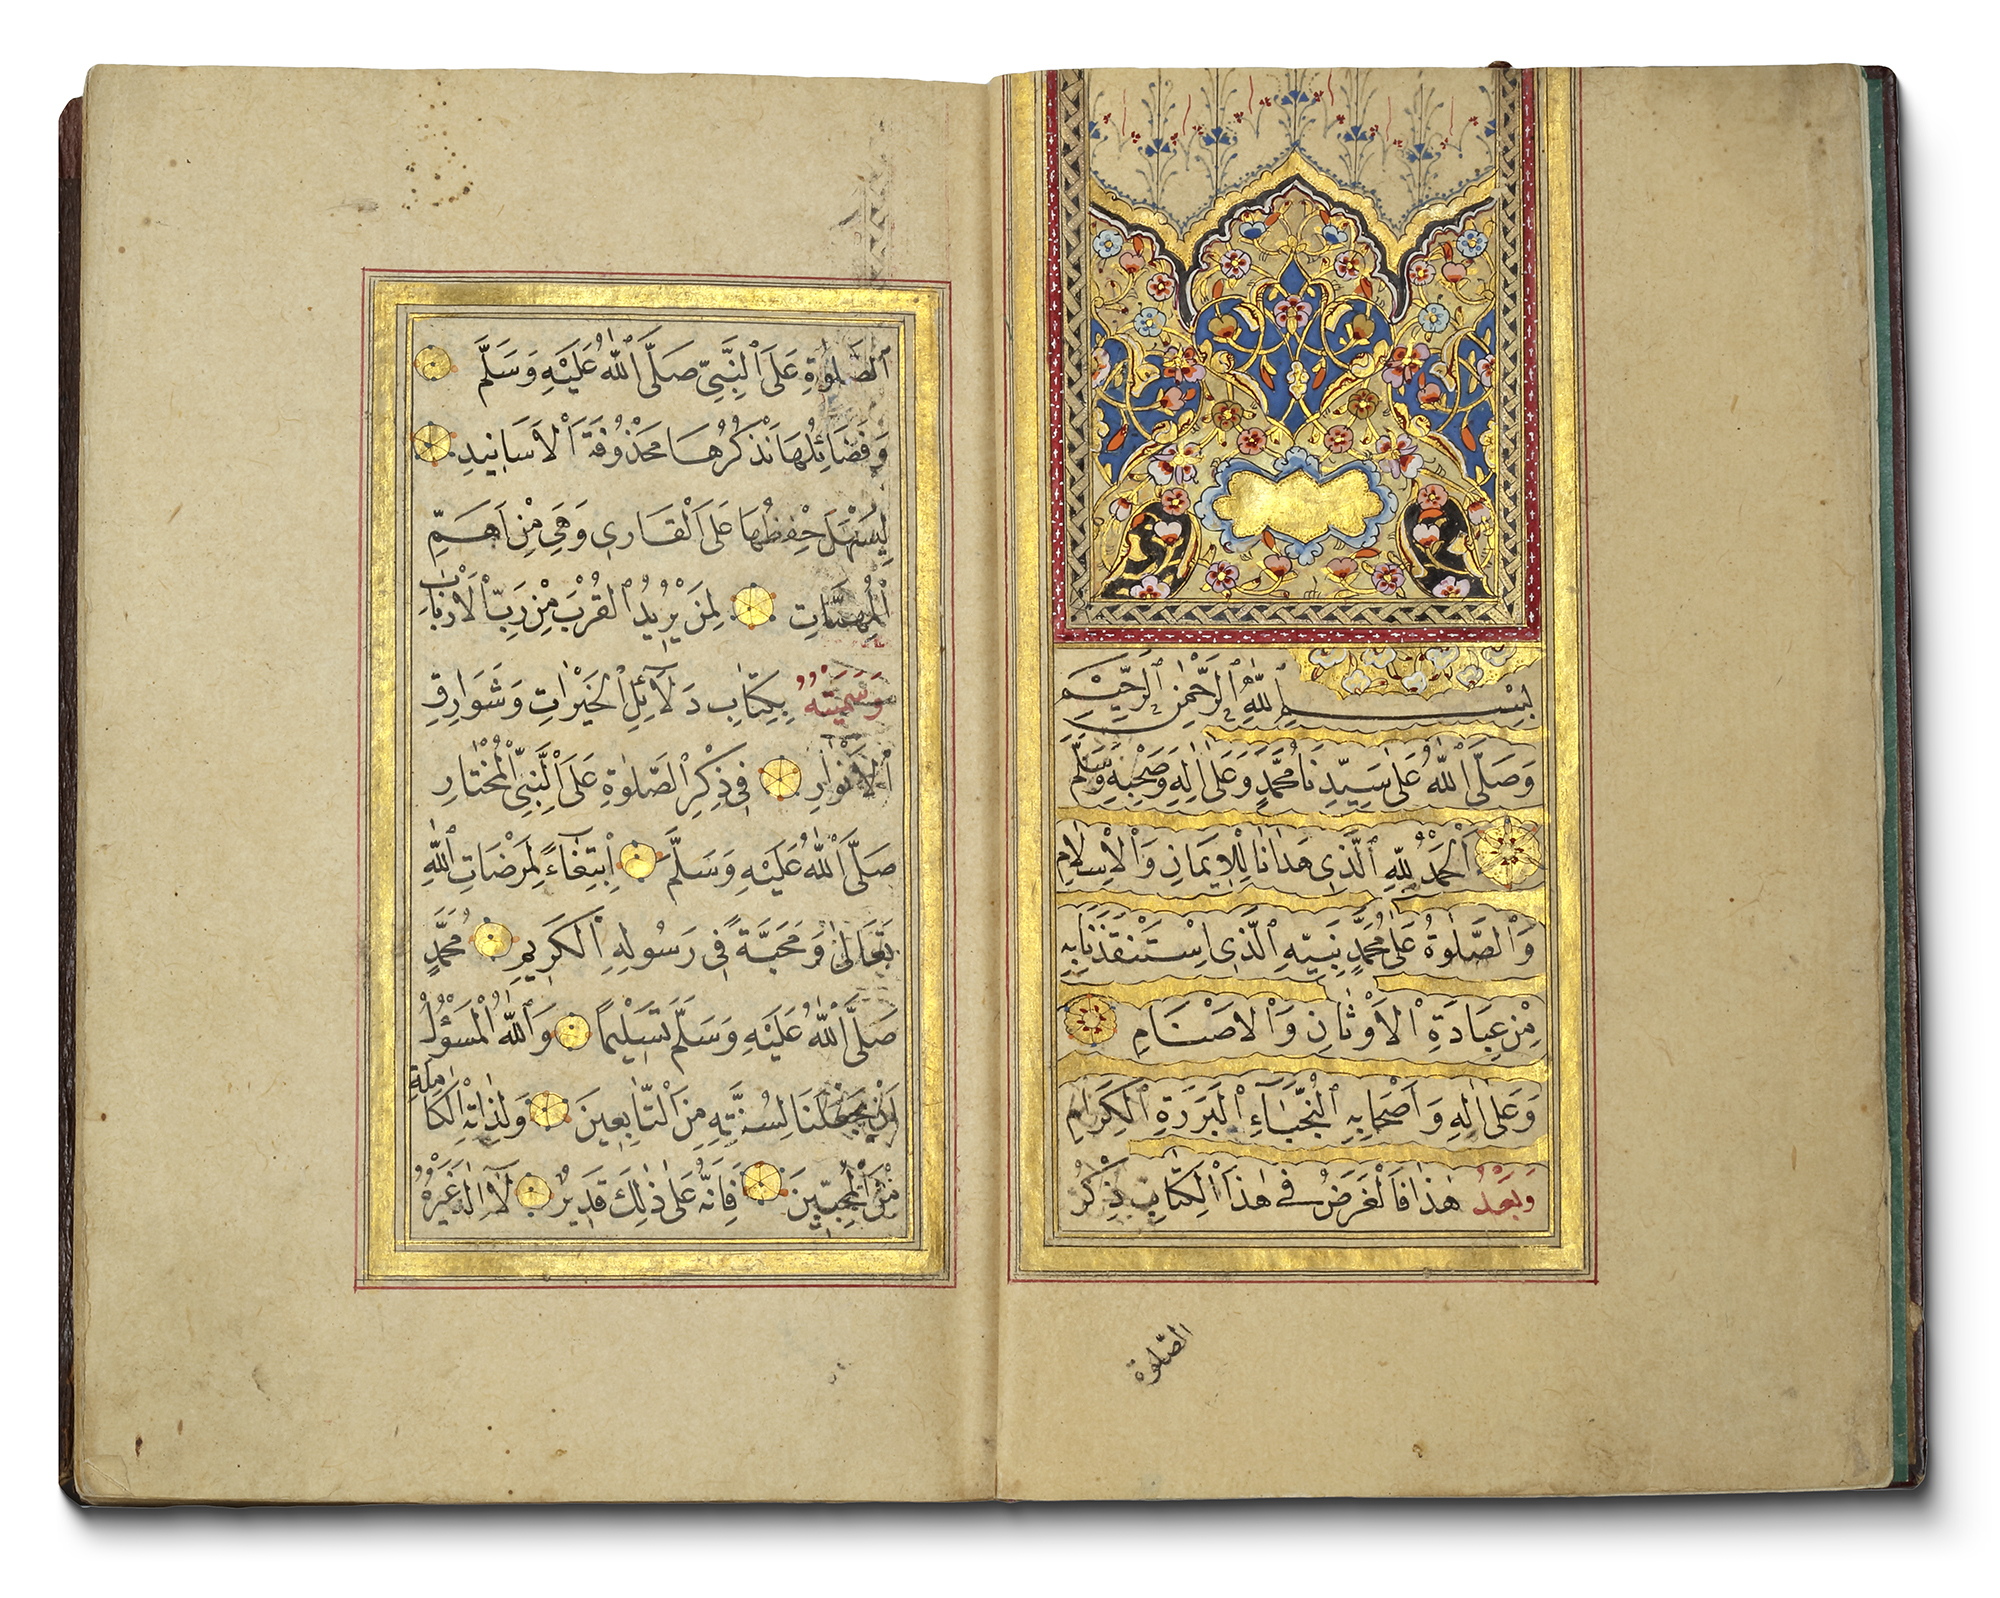 بِسْمِ اللهِ الرَّحْمٰنِ الرَّحِيْمِ
وَصَلَّى اللهُ عَلٰى سَيِّدِنَا مُحَمَّدٍ وَعَلٰى اٰلِهِ وَصَحْبِهِ وَسَلَّمَ
اَلْحَمْدُ لِلّٰهِ الَّذِى هَدَانَا لِلْاِيمَانِ وَالْاِسْلَامِ
وَالصَّلٰوةُ عَلٰى مُحَمَّدٍ نَبِيِّهِ الَّذِى اسْتَنْقَذَنَا بِهِ
مِنْ عِبَادَةِ الْاَوْثَانِ وَالْاَصْنَامِ
وَعَلٰى اٰلِهِ وَاَصْحَابِهِ النُّجَبَاءِ الْبَرَرَةِ الْكِرَامِ
وَبَعْدُ هٰذَا فَالْغَرَضُ فِى هٰذَا الْكِتَابِ ذِكْرُ
الصَّلٰوة
الصَّلٰوةِ عَلَى النَّبِيِّ صَلَّى اللهُ عَلَيْهِ وَسَلَّمَ
وَفَضَائِلُهَا نَذْكُرُهَا مَحْذُوفَةَ الْاَسَانِيدِ
لِيَسْهُلَ حِفْظُهَا عَلَى الْقَارِى وَهِيَ مِنْ اَهَمِّ
الْمُهِمَّاتِ لِمَنْ يُرِيدُ الْقُرْبَ مِنْ رَبِّ الْاَرْبَابِ
وَسَمَّيْتُهُ بِكِتَابِ دَلَآئِلِ الْخَيْرَاتِ وَشَوَارِقِ
الْاَنْوَارِ فِى ذِكْرِ الصَّلٰوةِ عَلَى النَّبِيِّ الْمُخْتَارِ
صَلَّى اللهُ عَلَيْهِ وَسَلَّمَ اِبْتِغَاءً لِمَرْضَاتِ اللهِ
تَعَالٰى وَمَحَبَّةً فِى رَسُولِهِ الْكَرِيمِ مُحَمَّدٍ
صَلَّى اللهُ عَلَيْهِ وَسَلَّمَ تَسْلِيمًا وَاللهُ الْمَسْؤُلُ
اَنْ يَجْعَلَنَا لِسُنَّتِهِ مِنَ التَّابِعِينَ وَلِذَاتِهِ الْكَامِلَةِ
مِنَ الْمُحِبِّينَ فَاِنَّهُ عَلٰى ذٰلِكَ قَدِيرٌ لَآ اِلٰهَ غَيْرُهُ